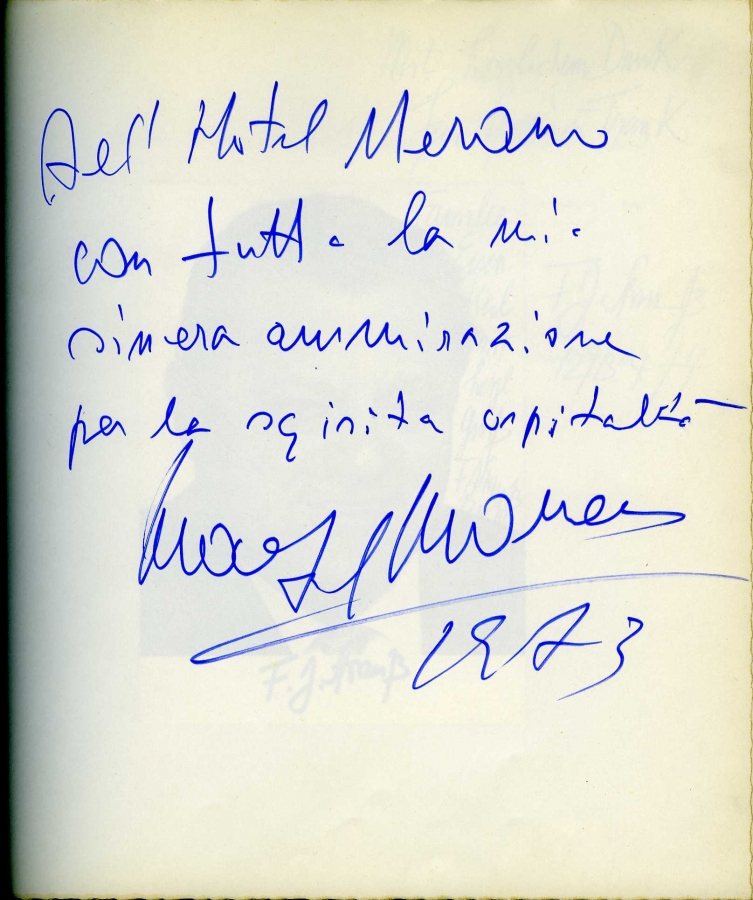 All' Hotel Merano
con tutta la mia
sincera ammirazione
per la sqisita ospitalità
1973
F. J. Strauß